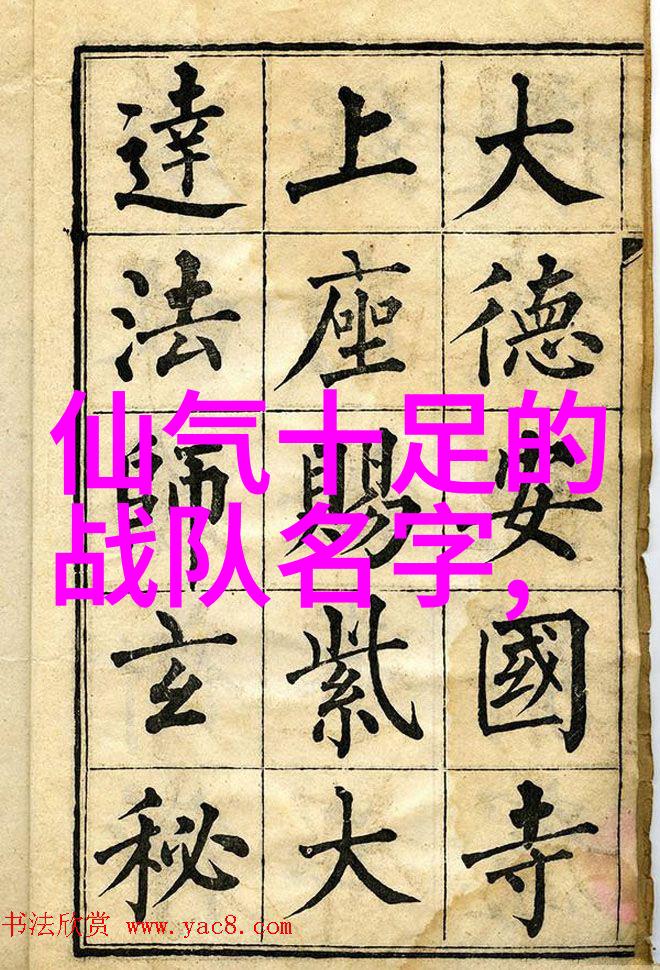 大德安國寺
上座賜紫大
達法師玄秘
仙气十足的
战队名字,
书法欣赏 www.yac8.com